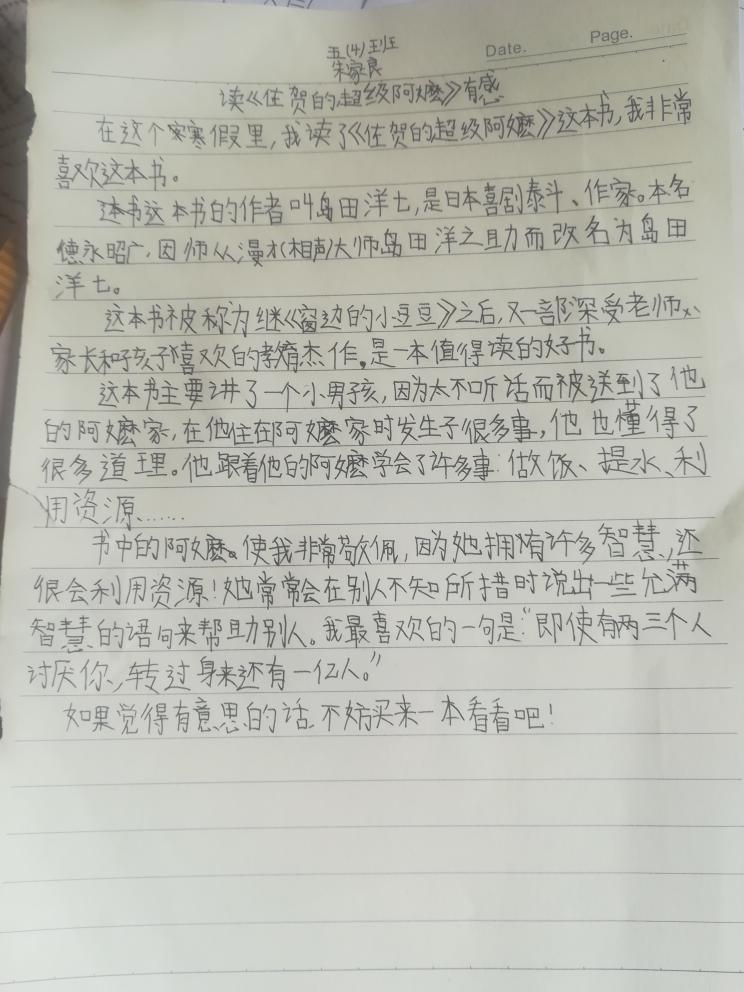 Date. Page.
五(4)班
朱家良
读《佐贺的超级阿嬷》有感
在这个寒假里,我读了《佐贺的超级阿嬷》这本书,我非常
喜欢这本书。
这本书的作者叫岛田洋七,是日本喜剧泰斗、作家。本名
德永昭广,因师从漫才(相声)大师岛田洋之助而改名为岛田
洋七。
这本书被称为继《窗边的小豆豆》之后,又一部深受老师、
家长和孩子喜欢的教育杰作。是一本值得读的好书。
这本书主要讲了一个小男孩,因为太不听话而被送到了他
的阿嬷家,在他住在阿嬷家时发生子很多事,他也懂得了
很多道理。他跟着他的阿嬷学会了许多事:做饭、提水、利
用资源……
书中的阿嬷使我非常敬佩,因为她拥有许多智慧,还
很会利用资源!她常常会在别人不知所措时说出一些充满
智慧的语句来帮助别人。我最喜欢的一句是:“即使有两三个人
讨厌你,转过身来还有一亿人。”
如果觉得有意思的话,不妨买来一本看看吧!